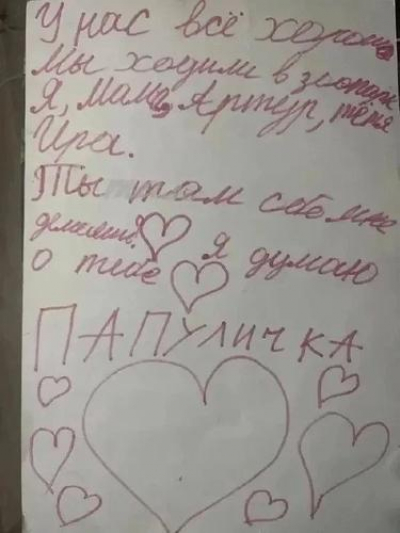 У нас всё хорошо
Мы ходили в зоопарк
Я, Мама, Артур, тётя
Ира.
Ты там себе мне
о тебе я думаю
ПАПУЛИЧКА